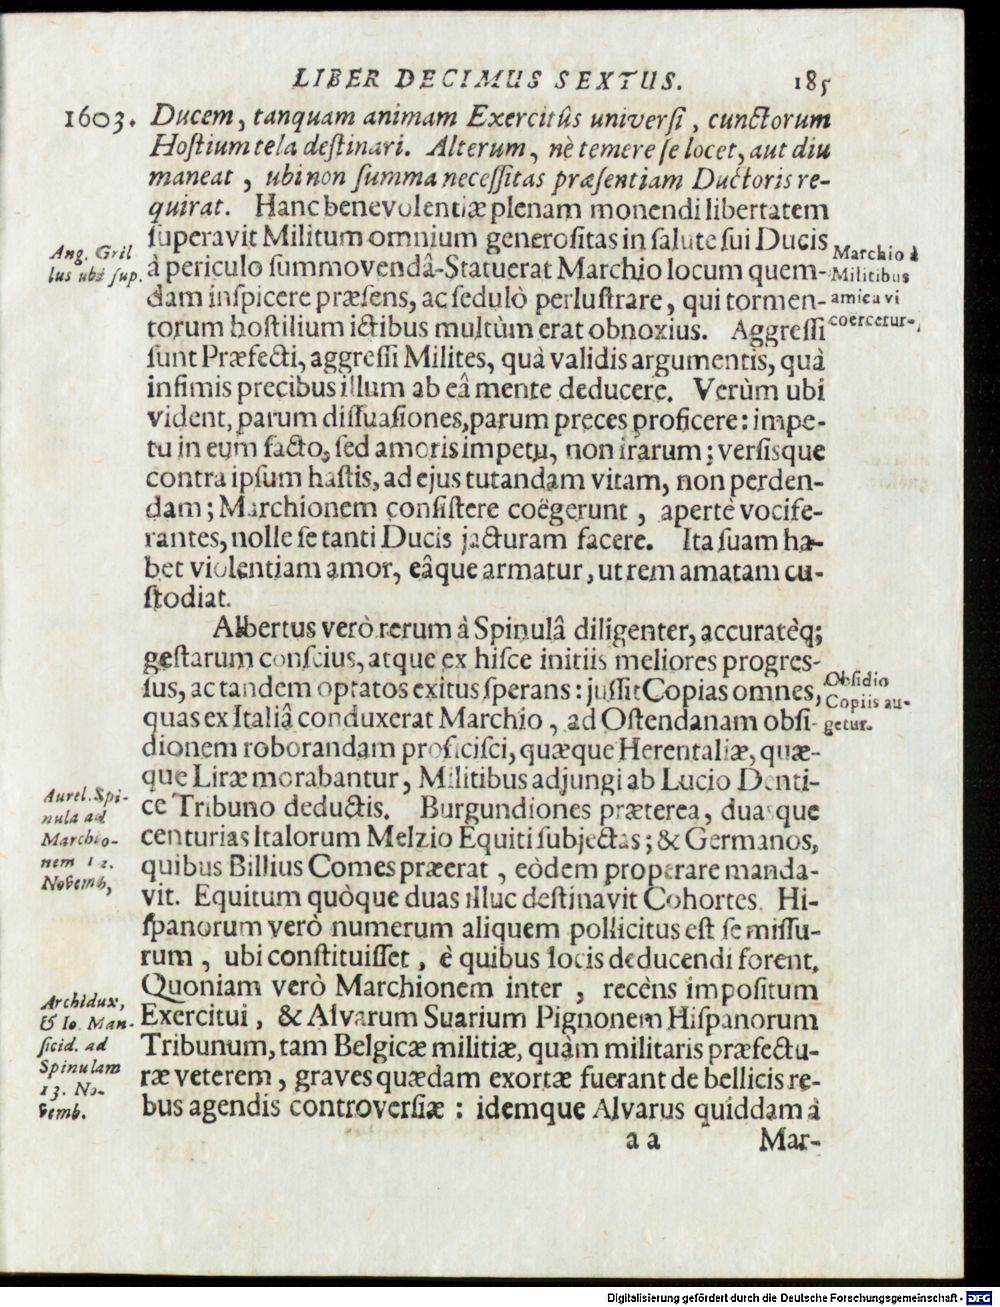 LIBER DECIMUS SEXTUS. 185
1603. Ducem, tanquam animam Exercitûs universi, cunctorum
Hostium tela destinari. Alterum, nè temere se locet, aut diu
maneat, ubi non summa necessitas præsentiam Ductoris re-
quirat. Hanc benevolentiæ plenam monendi libertatem
superavit Militum omnium generositas in salute sui Ducis
à periculo summovendâ. Statuerat Marchio locum quem-
dam inspicere præsens, ac sedulò perlustrare, qui tormen-
torum hostilium ictibus multùm erat obnoxius. Aggressi
sunt Præfecti, aggressi Milites, quà validis argumentis, quà
infimis precibus illum ab eâ mente deducere. Verùm ubi
vident, parum dissuasiones, parum preces proficere: impe-
tu in eum facto, sed amoris impetu, non irarum; versisque
contra ipsum hastis, ad ejus tutandam vitam, non perden-
dam; Marchionem consistere coëgerunt, apertè vocife-
rantes, nolle se tanti Ducis jacturam facere. Ita suam ha-
bet violentiam amor, eâque armatur, ut rem amatam cu-
stodiat.
Albertus verò rerum à Spinulâ diligenter, accuratèq;
gestarum conscius, atque ex hisce initiis meliores progres-
sus, ac tandem optatos exitus sperans: jussit Copias omnes,
quas ex Italiâ conduxerat Marchio, ad Ostendanam obsi-
dionem roborandam proficisci, quæque Herentaliæ, quæ-
que Liræ morabantur, Militibus adjungi ab Lucio Denti-
ce Tribuno deductis. Burgundiones præterea, duasque
centurias Italorum Melzio Equiti subjectas; & Germanos,
quibus Billius Comes præerat, eòdem properare manda-
vit. Equitum quòque duas illuc destinavit Cohortes. Hi-
spanorum verò numerum aliquem pollicitus est se missu-
rum, ubi constituisset, è quibus locis deducendi forent.
Quoniam verò Marchionem inter, recèns impositum
Exercitui, & Alvarum Suarium Pignonem Hispanorum
Tribunum, tam Belgicæ militiæ, quàm militaris præfectu-
ræ veterem, graves quædam exortæ fuerant de bellicis re-
bus agendis controversiæ: idemque Alvarus quiddam à
a a Mar-
Ang. Gril
lus ubi sup.
Marchio à
Militibus
amica vi
coercetur.
Obsidio
Copiis au-
getur.
Aurel. Spi-
nula ad
Marchio-
nem 12.
Novemb,
Archidux,
& Io. Man-
sicid. ad
Spinulam
13. No-
vemb.
Digitalisierung gefördert durch die Deutsche Forschungsgemeinschaft - DFG